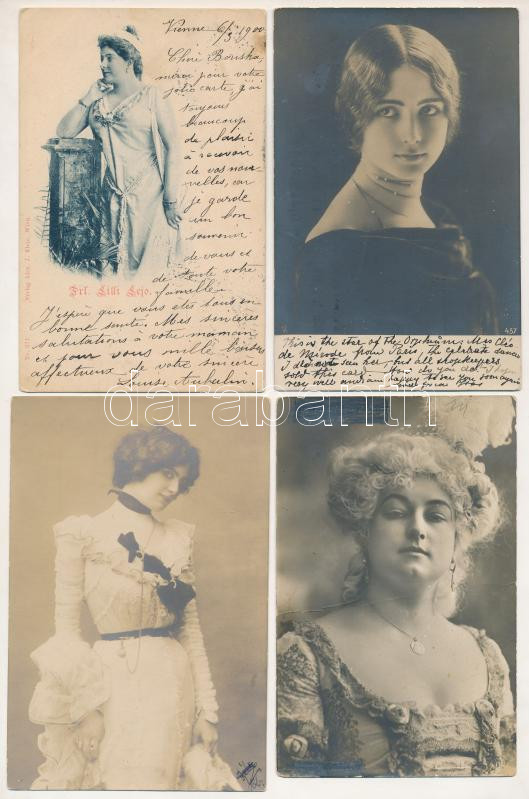 Vienne 6/3 1900
Chère Boriska,
merci pour votre
jolie carte, j'ai
toujours
beaucoup
de plaisir
à recevoir
de vos nou-
velles, car
je garde
un bon
souvenir
de vous et
de toute votre
famille.
J'espère que vous êtes tous en
bonne santé. Mes sincères
salutations à votre maman
et pour vous mille baisers
affectueux de votre sincère
Louise Aubelin.
Frl. Lilli Lejo.
457
This is the star of the Orphéum, Miss Cléo
de Mérode from Paris, the celebrate dancer
I did not see her but all shopkeepers
sold this card. How do you do?
very well and am happy to see you
darabanth